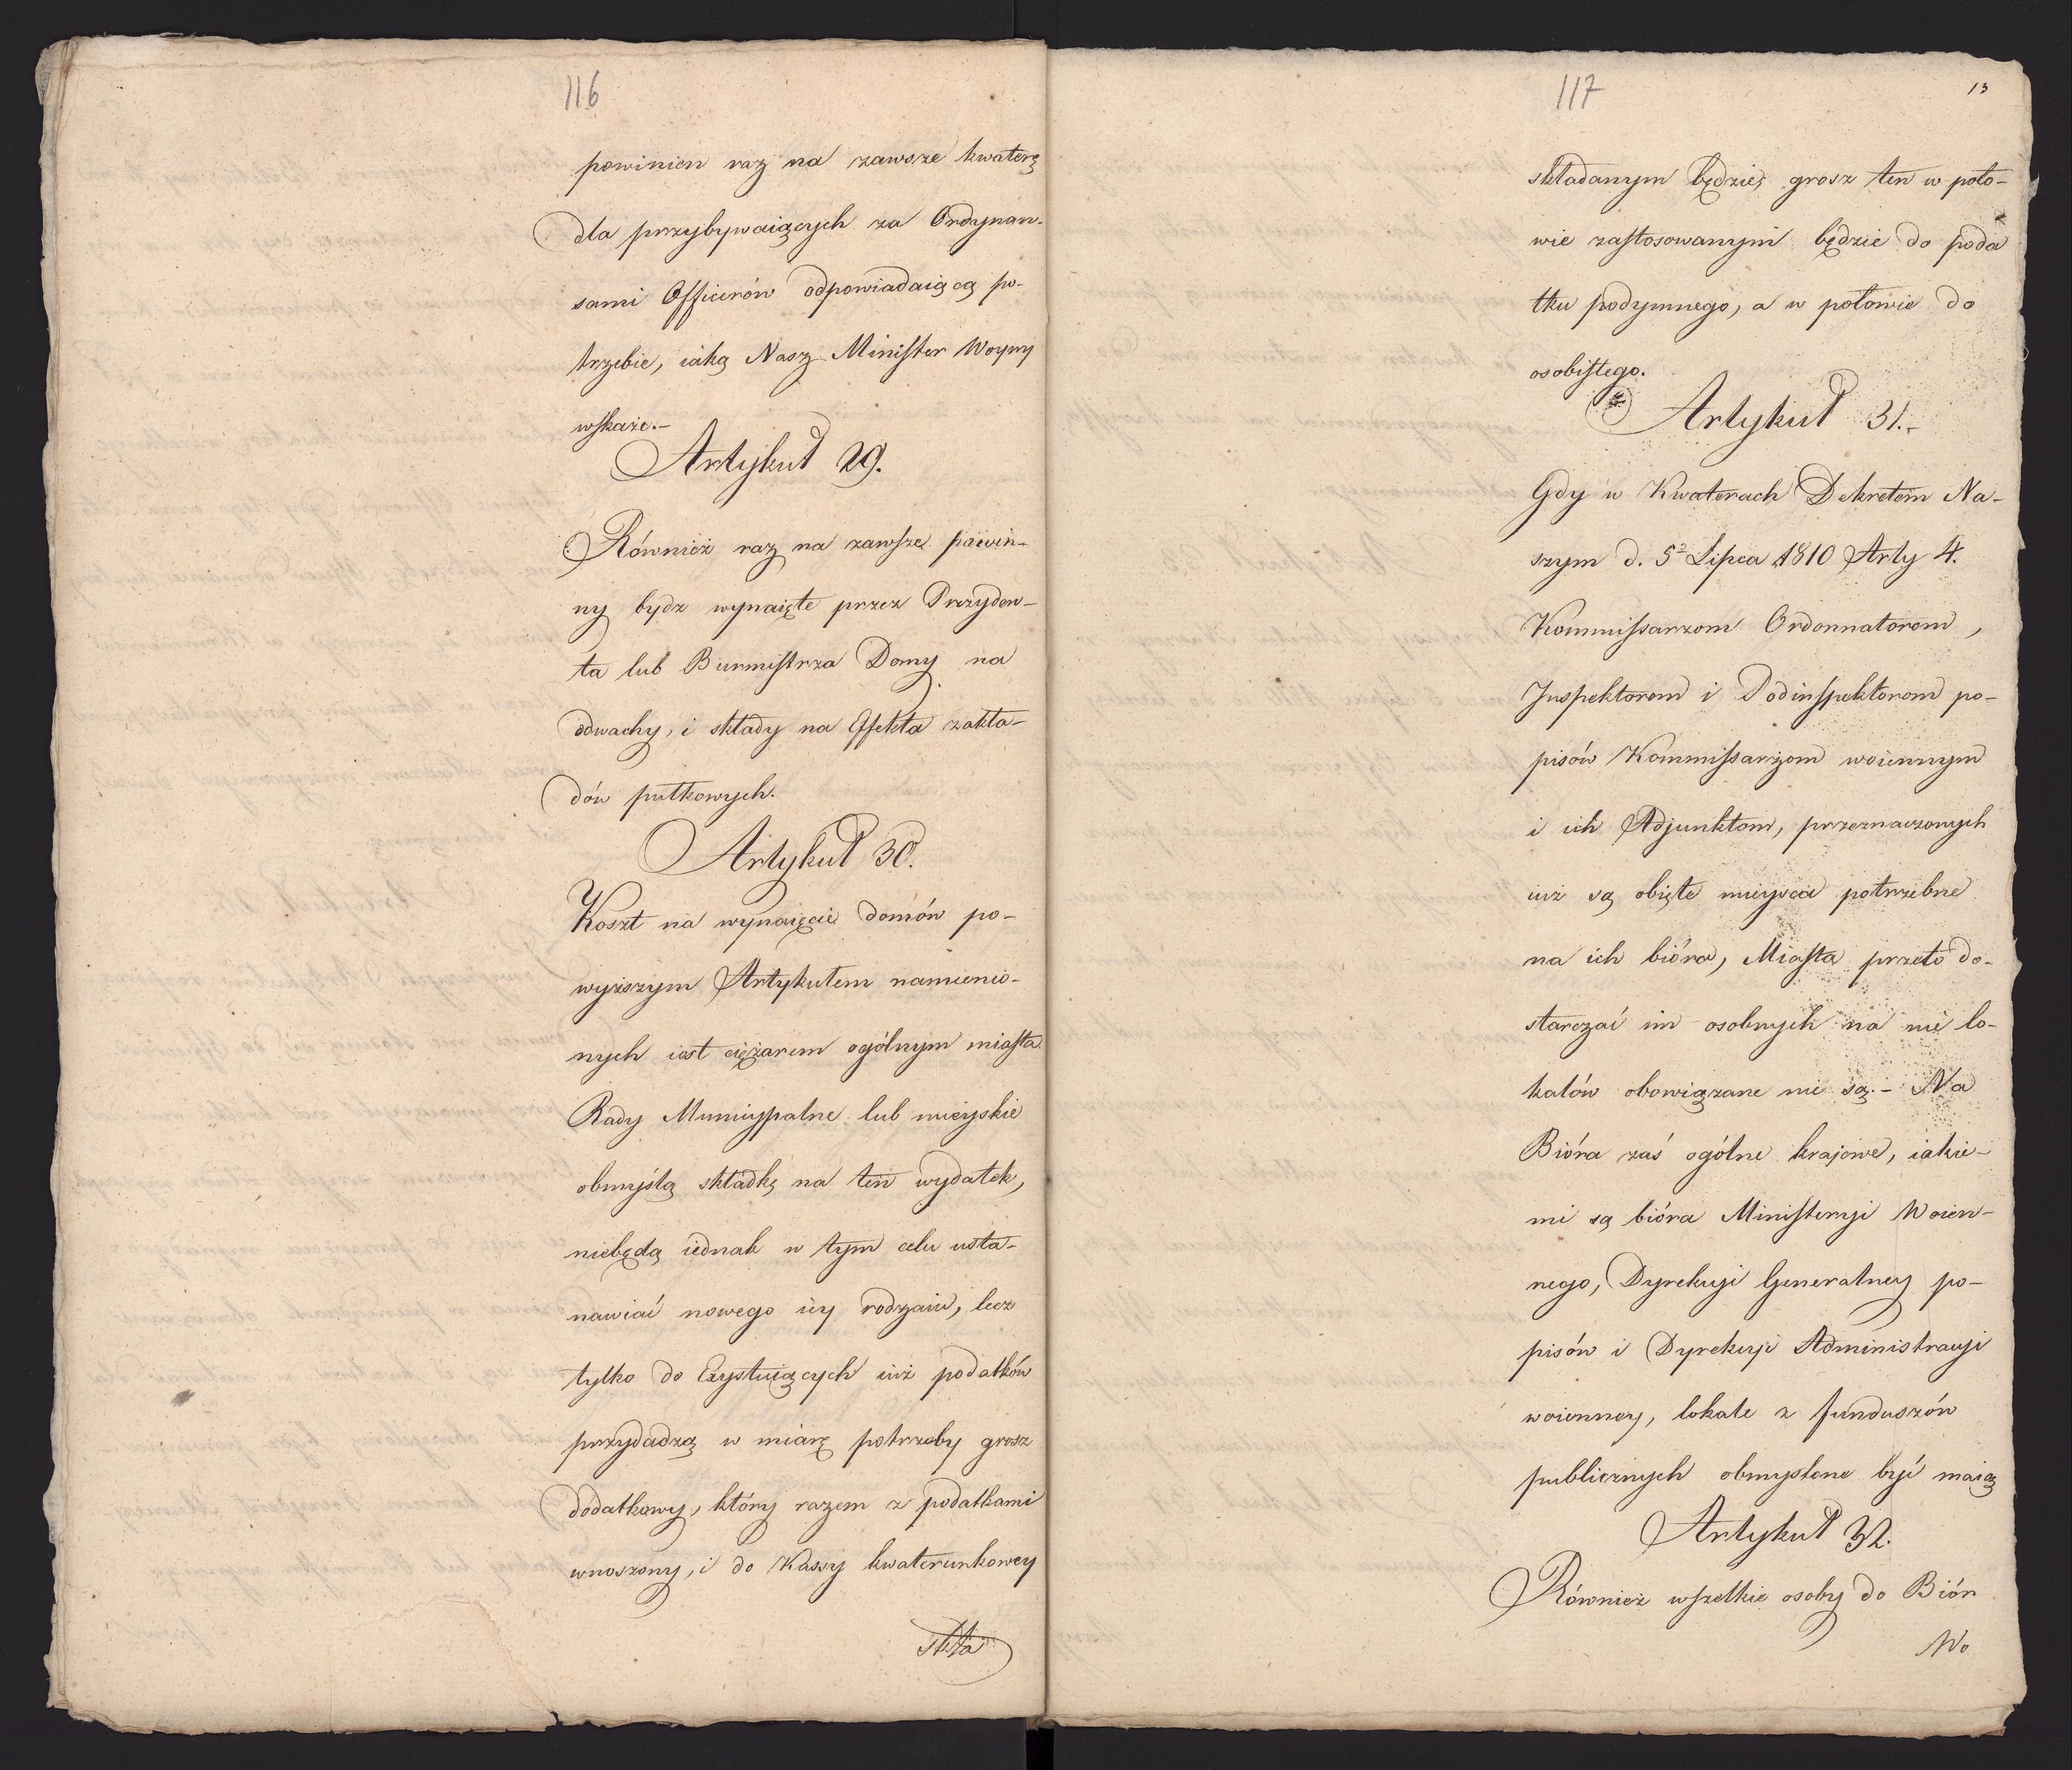 116
powinien raz na zawsze kwaterę
dla przybywaiących za Ordynan-
sami Officerów odpowiadaiącą po-
trzebie, iaką Nasz Minister Woyny
wskaże.-
Artykuł 29.
Również raz na zawsze powin-
ny bydz wynaięte przez Prezyden-
ta lub Burmistrza Domy na
odwachy, i składy na Effekta zakła-
dów pułkowych.
Artykuł 30.
Koszt na wynaięcie domów po-
wyższym Artykułem namienio-
nych iest ciężarem ogólnym miasta.
Rady Municypalne lub mieyskie
obmyślą składkę na ten wydatek,
niebędą iednak w tym celu usta-
nawiać nowego iéy rodzaiu, lecz
tylko do Exystuiących iuż podatków
przydadzą w miarę potrzeby grosz
dodatkowy, który razem z podatkami
wnoszony, i do Kassy kwaterunkowey
skła
117
13
składanym będzie; grosz ten w poło-
wie zastosowanym będzie do poda
tku podymnego, a w połowie do
osobistego.
Artykuł 31.-
Gdy w Kwaterach Dekretem Na-
szym d. 5º Lipca 1810 Arty 4.
Kommissarzom Ordonnatorom,
Inspektorom i Podinspektorom po-
pisów Kommissarzom woiennym
i ich Adjunktom, przeznaczonych
iuż są obięte mieysca potrzebne
na ich bióra, Miasta przeto do-
starczać im osobnych na nie lo-
kalów obowiązane nie są.- Na
Bióra zaś ogólne krajowe, iakie-
mi są bióra Ministeryi Woien-
nego, Dyrekcyi Generalney po-
pisów i Dyrekcyi Administracyi
woienney, lokale z funduszów
publicznych obmyslone być maią
Artykuł 32.
Również wszelkie osoby do Biór
Wo